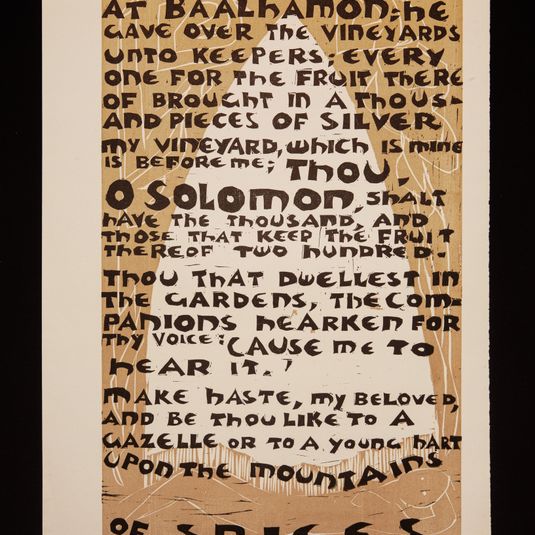 AT BAALHAMON; HE
GAVE OVER THE VINEYARDS
UNTO KEEPERS; EVERY
ONE FOR THE FRUIT THERE
OF BROUGHT IN A THOUS-
AND PIECES OF SILVER
MY VINEYARD, WHICH IS MINE
IS BEFORE ME; THOU,
O SOLOMON, SHALT
HAVE THE THOUSAND, AND
THOSE THAT KEEP THE FRUIT
THEREOF TWO HUNDRED.
THOU THAT DWELLEST IN
THE GARDENS, THE COM-
PANIONS HEARKEN FOR
THY VOICE: 'CAUSE ME TO
HEAR IT.'
MAKE HASTE, MY BELOVED,
AND BE THOU LIKE TO A
GAZELLE OR TO A YOUNG HART
UPON THE MOUNTAINS
OF SPICES